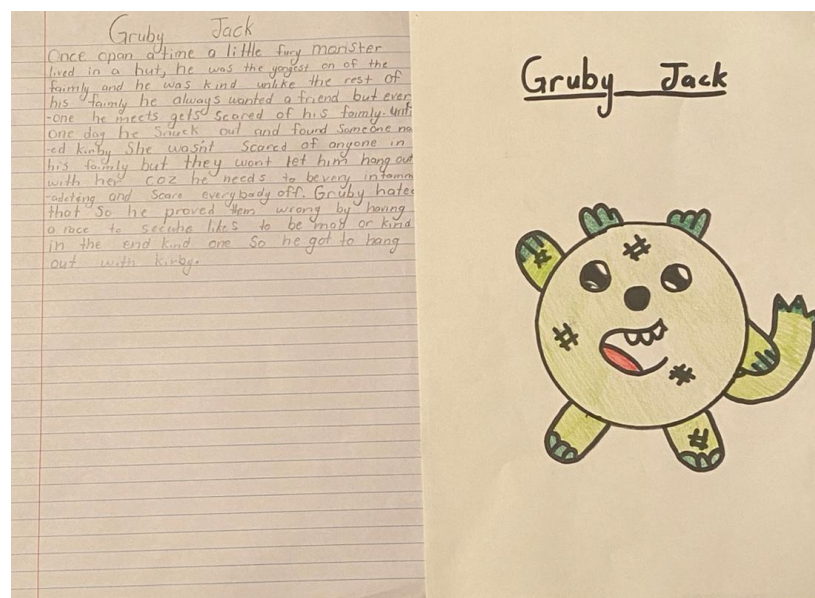 Gruby Jack
Once opan a time a little fury monster
lived in a hut, he was the yongest on of the
faimly and he was kind unlike the rest of
his faimly he always wanted a friend but ever
-one he meets gets scared of his faimly. unti
one day he snuck out and found someone na
-ed kirby She wasn't scared of anyone in
his faimly but they wont let him hang out
with her coz he needs to be very intamm
-adeting and scare everybody off. Gruby hates
that so he proved them wrong by having
a race to see who likes to be mad or kind
in the end kind one so he got to hang
out with kirby.
Gruby Jack